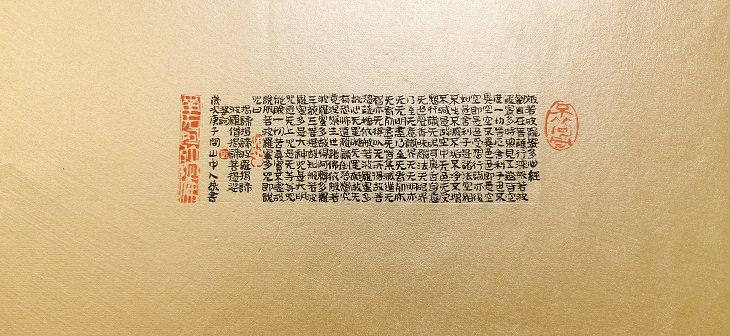 般若波羅蜜多心經
觀自在菩薩行深般若波
羅蜜多時照見五蘊皆空
度一切苦厄舍利子色不
異空空不異色色即是空
空即是色受想行識亦復
如是舍利子是諸法空相
不生不滅不垢不淨不增
不減是故空中无色无受
想行識无眼耳鼻舌身意
无色聲香味觸法无眼界
乃至无意識界无无明亦
无无明盡乃至无老死亦
无老死盡无苦集滅道无
智亦无得以无所得故菩
提薩埵依般若波羅蜜多
故心无罣礙无罣礙故无
有恐怖遠離顛倒夢想究
竟涅槃三世諸佛依般若
波羅蜜多故得阿耨多羅
三藐三菩提故知般若波
羅蜜多是大神咒是大明
咒是无上咒是无等等咒
能除一切苦真實不虛故
說般若波羅蜜多咒即說
咒曰
揭諦揭諦波羅揭諦
波羅僧揭諦菩提薩
婆訶
歲次庚子閏山中人敬書
南无阿彌陀佛